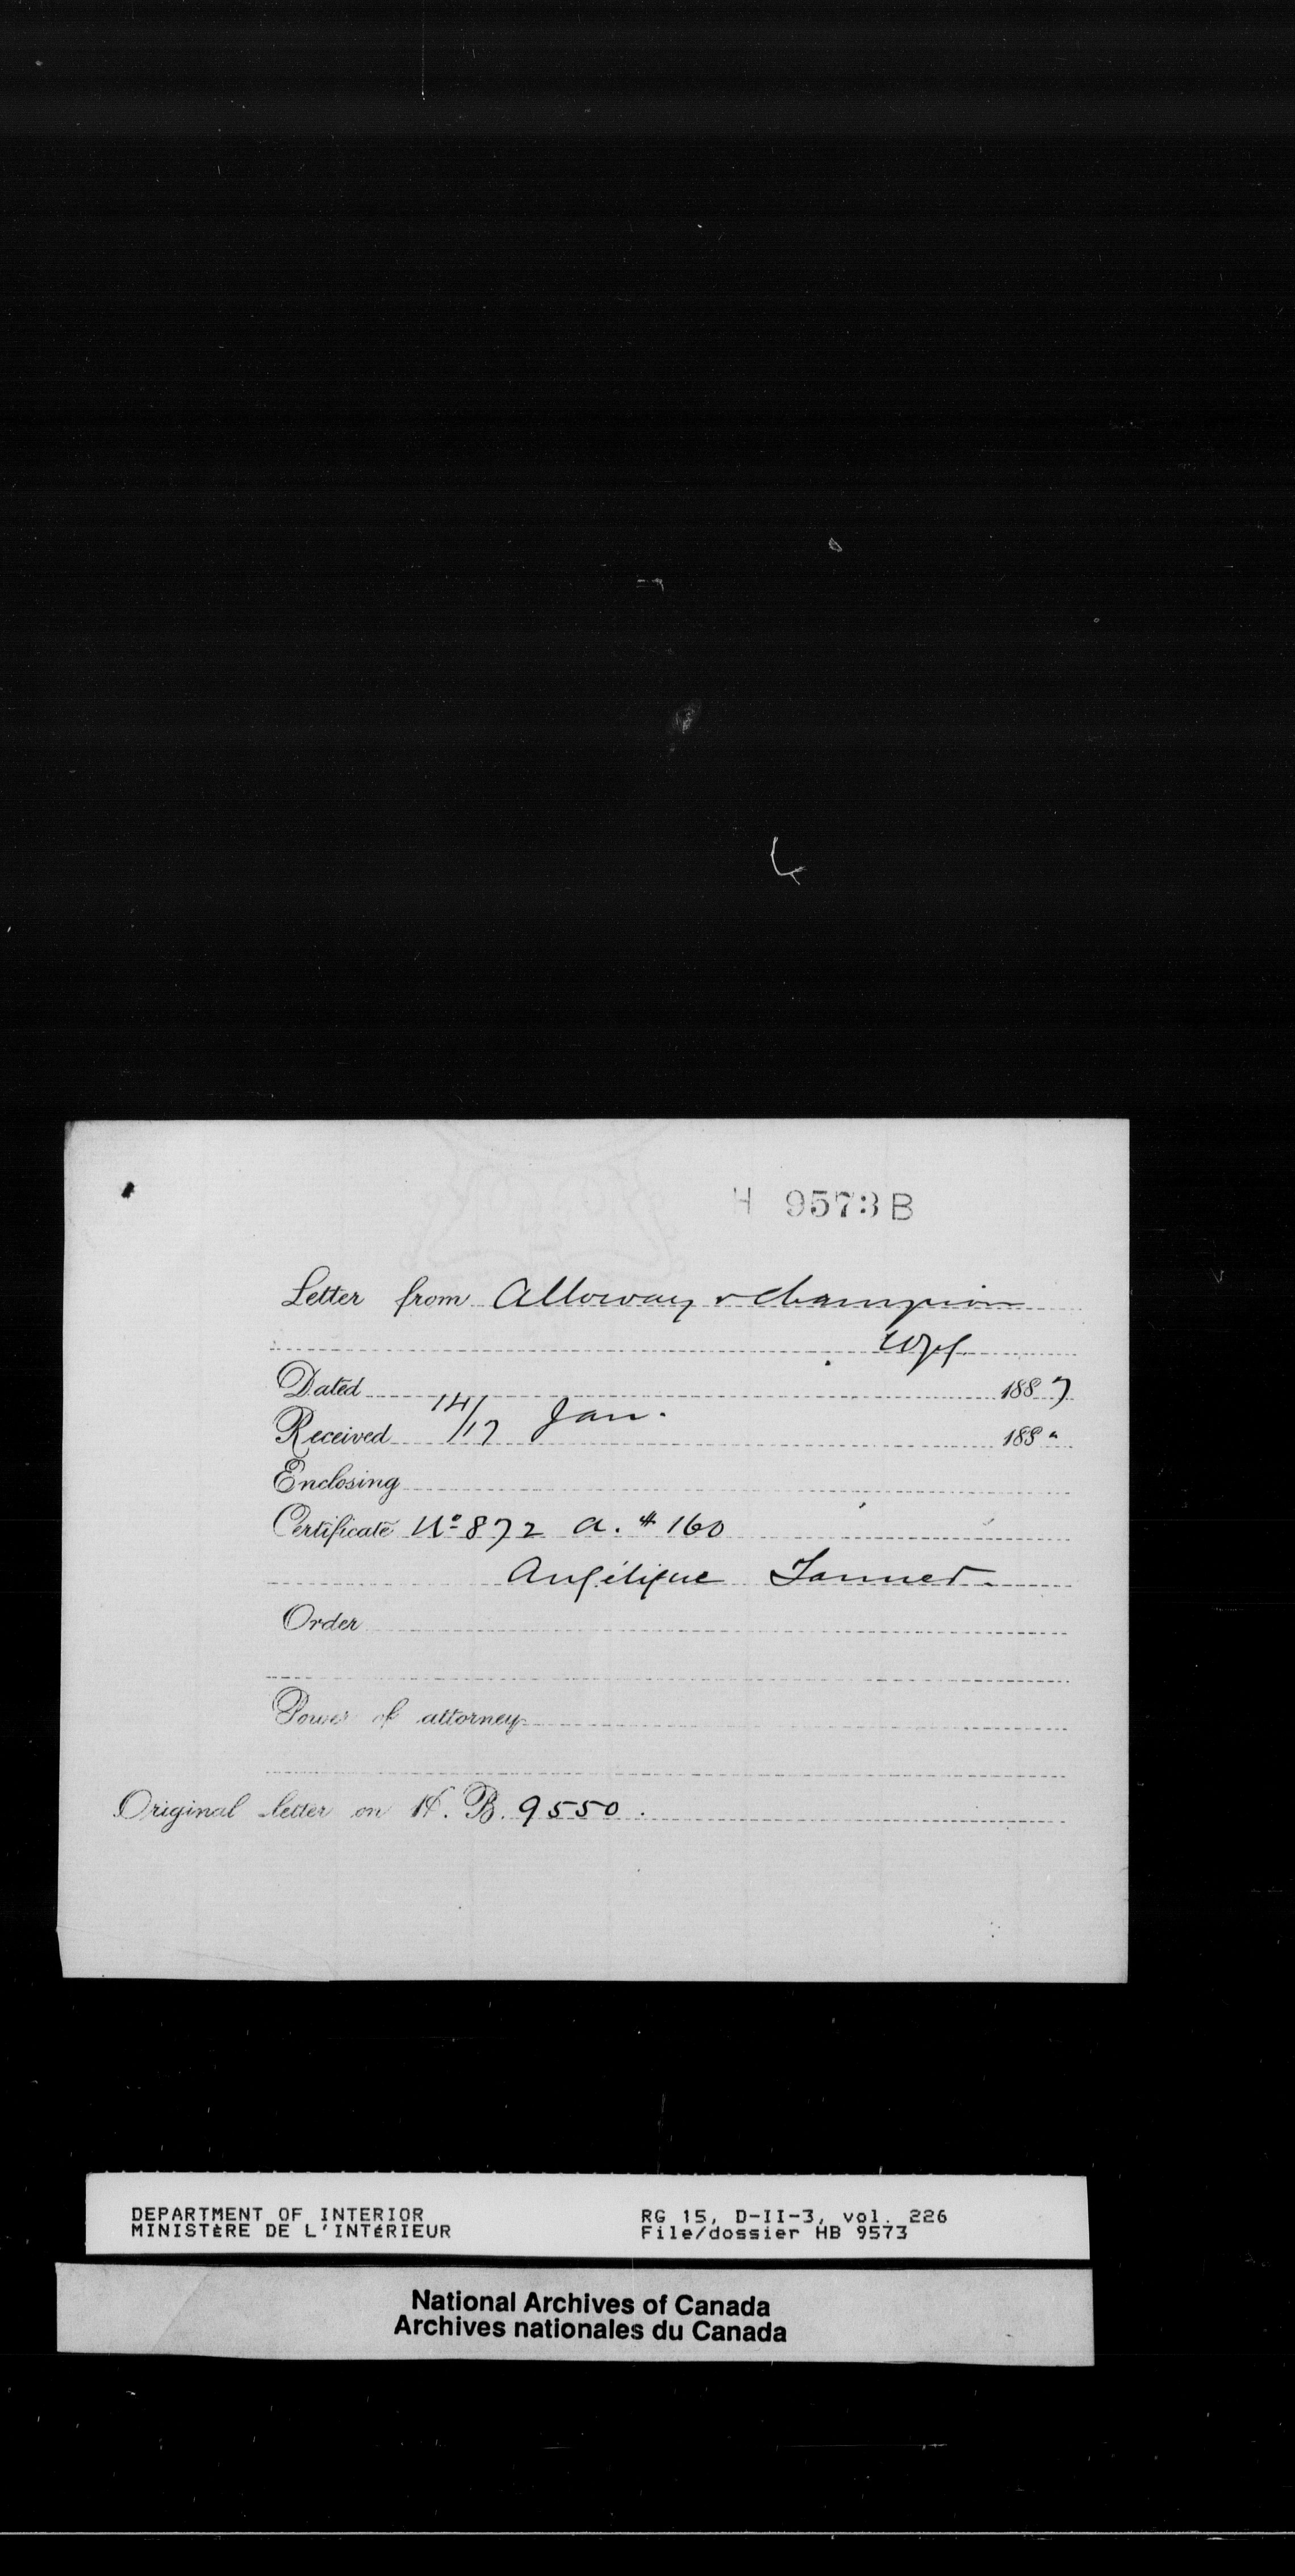 H 9573 B
Letter from Alloway & Champion
Wpg
Dated 14/ 1887
Received /17 Jan. 188 "
Enclosing
Certificate No 872 A. $160
Angélique
Order
Power of attorney
Original letter on H. B. 9550.
DEPARTMENT OF INTERIOR RG 15, D-II-3, vol. 226
MINISTÈRE DE L'INTÉRIEUR File/dossier HB 9573
National Archives of Canada
Archives nationales du Canada